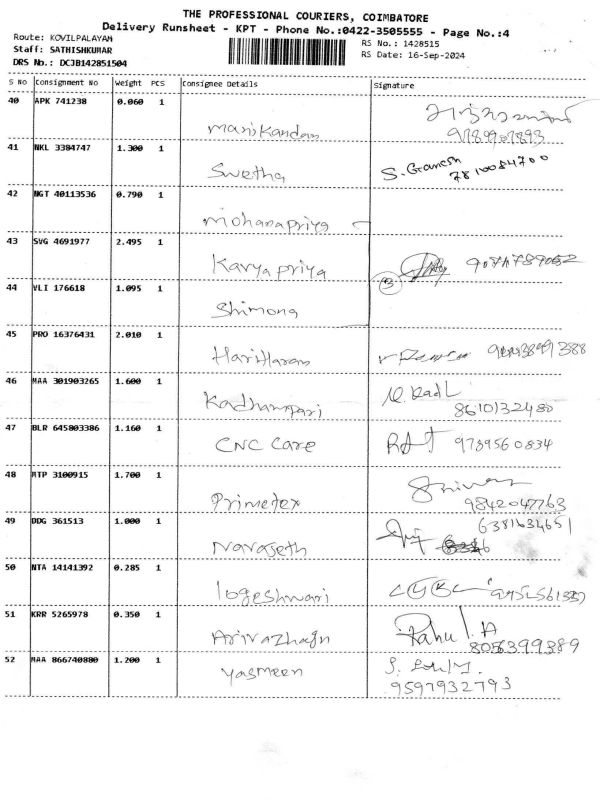 THE PROFESSIONAL COURIERS, COIMBATORE
Delivery Runsheet - KPT - Phone No.:0422-3505555 - Page No.:4
Route: KOVILPALAYAM
RS No.: 1428515
Staff: SATHISHKUMAR
RS Date: 16-Sep-2024
DRS No.: DCJB142851504
S No Consignment No Weight PCS Consignee Details Signature
40 APK 741238 0.060 1
Manikandan 9789907893
41 NKL 3384747 1.300 1
Swetha S. Ganesh 7810084700
42 NGT 40113536 0.790 1
mohanapriya
43 SVG 4691977 2.495 1
Kavyapriya
44 VLI 176618 1.095 1 (3)
Shimona
45 PRO 16376431 2.010 1
HariHaran
46 MAA 301903265 1.600 1
Kadhampari 8610132480
47 BLR 645803386 1.160 1
CNC Care 9789560834
48 MTP 3100915 1.700 1
Primetex 9842047763
49 DDG 361513 1.000 1 6381634651
Navaseth
50 NTA 14141392 0.285 1
logeshwari
51 KRR 5265978 0.350 1
Arivazhagn Rahul.A
8056399389
52 MAA 866740880 1.200 1
Yasmeen 9597932793